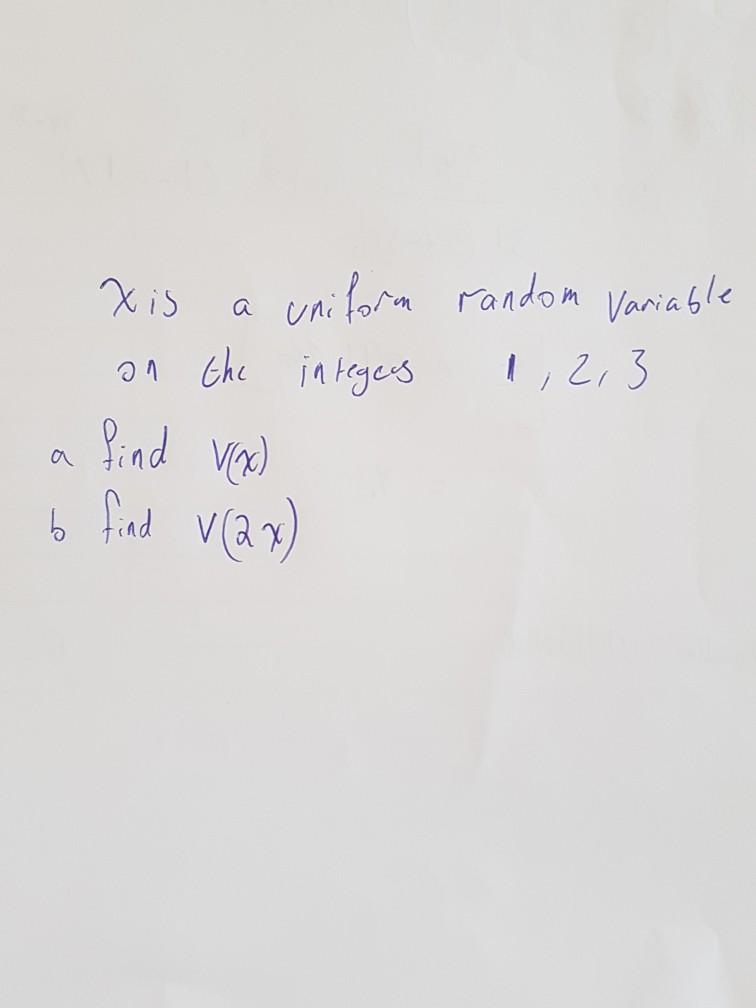 X is a uniform random variable
on the integers 1, 2, 3
a find V(x)
b find V(2x)